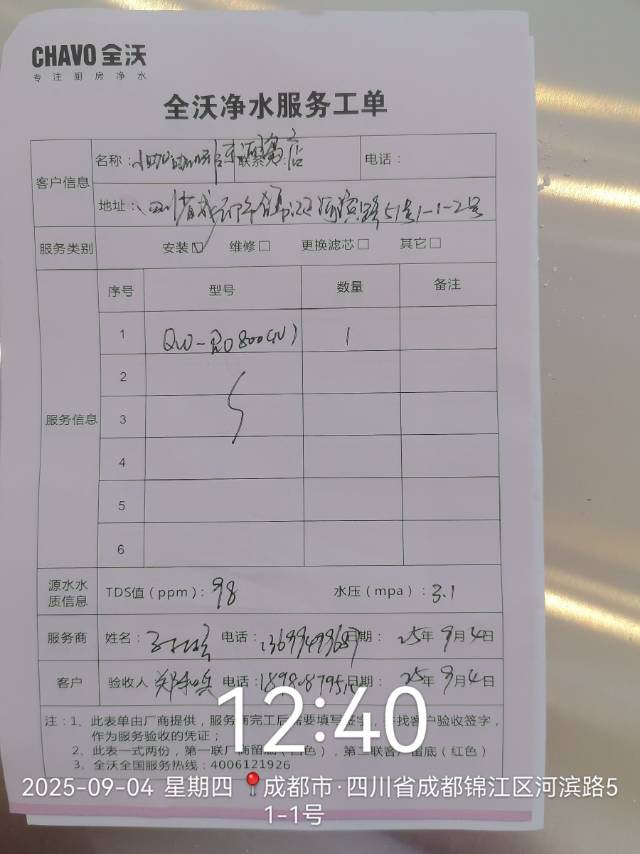 CHAVO 全沃
专注厨房净水
全沃净水服务工单
客户信息
名称： 联系人： 店
电话：
地址：四川省成都 河滨路51号1-1-2号
服务类别 安装☑ 维修☐ 更换滤芯☐ 其它☐
服务信息
序号 型号 数量 备注
1 QW-RO800(N) 1
2
3
4
5
6
源水水质信息
TDS值（ppm）：98 水压（mpa）：3.1
服务商 姓名： 电话： 日期：25年9月4日
客户 验收人 郑 电话： 日期：25年9月4日
注：1、此表单由厂商提供，服务商完工后需要填写签字，并找客户验收签字，
作为服务验收的凭证；
2、此表一式两份，第一联厂商留底（白色），第二联客户留底（红色）
3、全沃全国服务热线：4006121926
12:40
2025-09-04 星期四 成都市·四川省成都锦江区河滨路5
1-1号